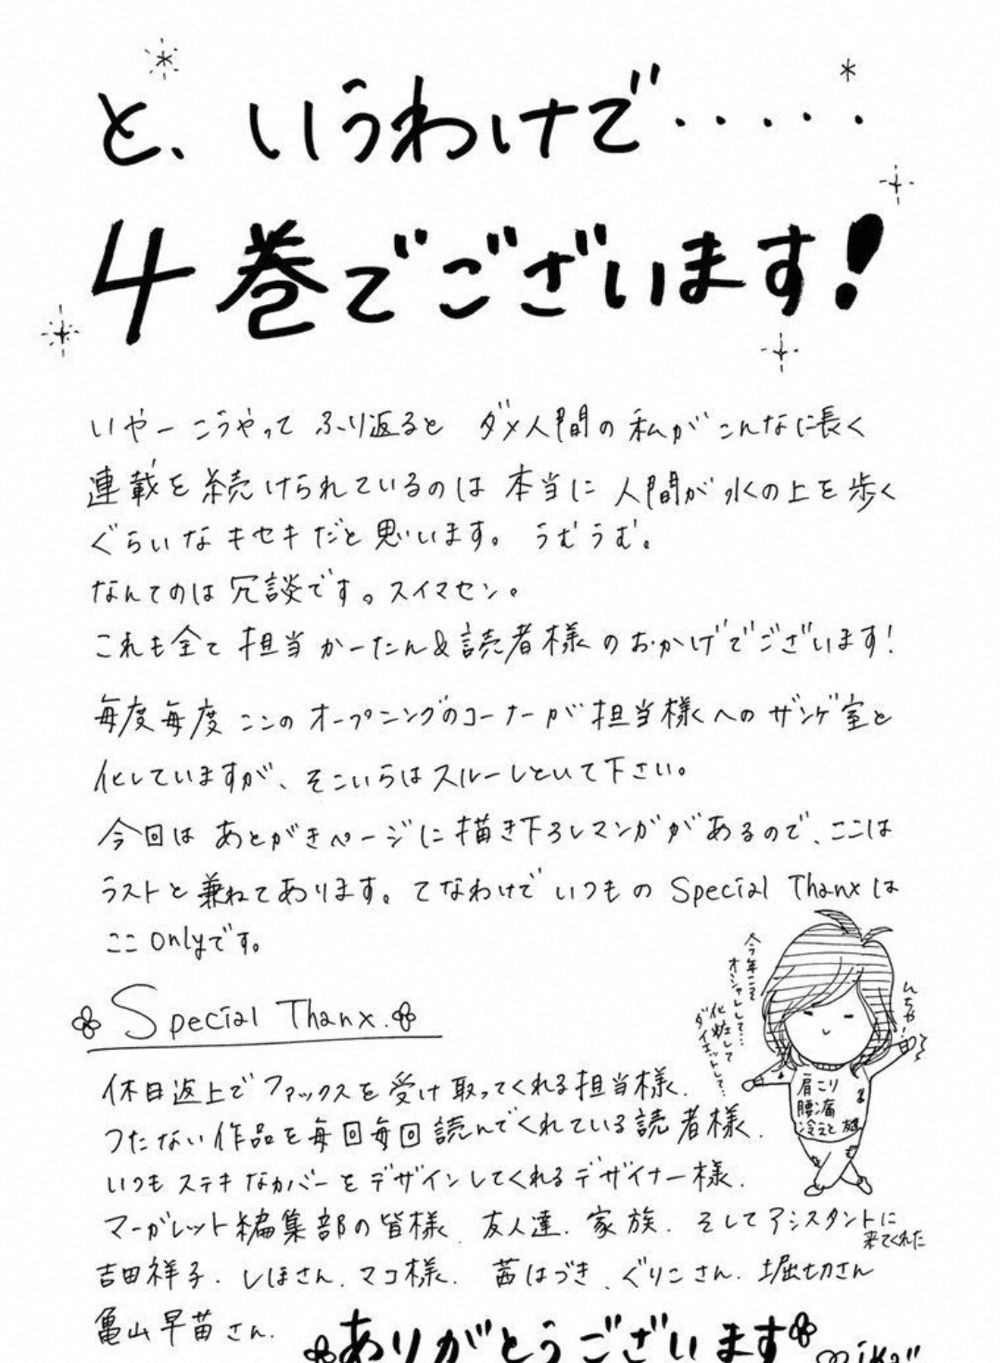 と、いうわけで・・・・・
4巻でございます!
いやー こうやって ふり返ると ダメ人間の私がこんなに長く
連載を続けられているのは本当に人間が水の上を歩く
ぐらいなキセキだと思います。うむうむ。
なんてのは冗談です。スイマセン。
これも全て担当かーたん&読者様のおかげでございます!
毎度毎度ここのオープニングのコーナーが担当様へのザンゲ室と
化していますが、そこいらはスルーしといて下さい。
今回はあとがきページに描き下ろしマンガがあるので、ここは
ラストと兼ねてあります。てなわけでいつものSpecial Thanxは
ここonlyです。
Special Thanx.
休日返上でファックスを受け取ってくれる担当様.
つたない作品を毎回毎回読んでくれている読者様.
いつもステキなカバーをデザインしてくれるデザイナー様.
マーガレット編集部の皆様. 友人達. 家族. そしてアシスタントに
来てくれた
吉田祥子. しほさん. マコ様. 茜はづき. ぐりこさん. 堀切さん
亀山早苗さん.
ありがとうございます
今年こそ
オシャレして…
化粧して
ダイエットして…
んちゃ!
肩こり
腰痛
冷えと